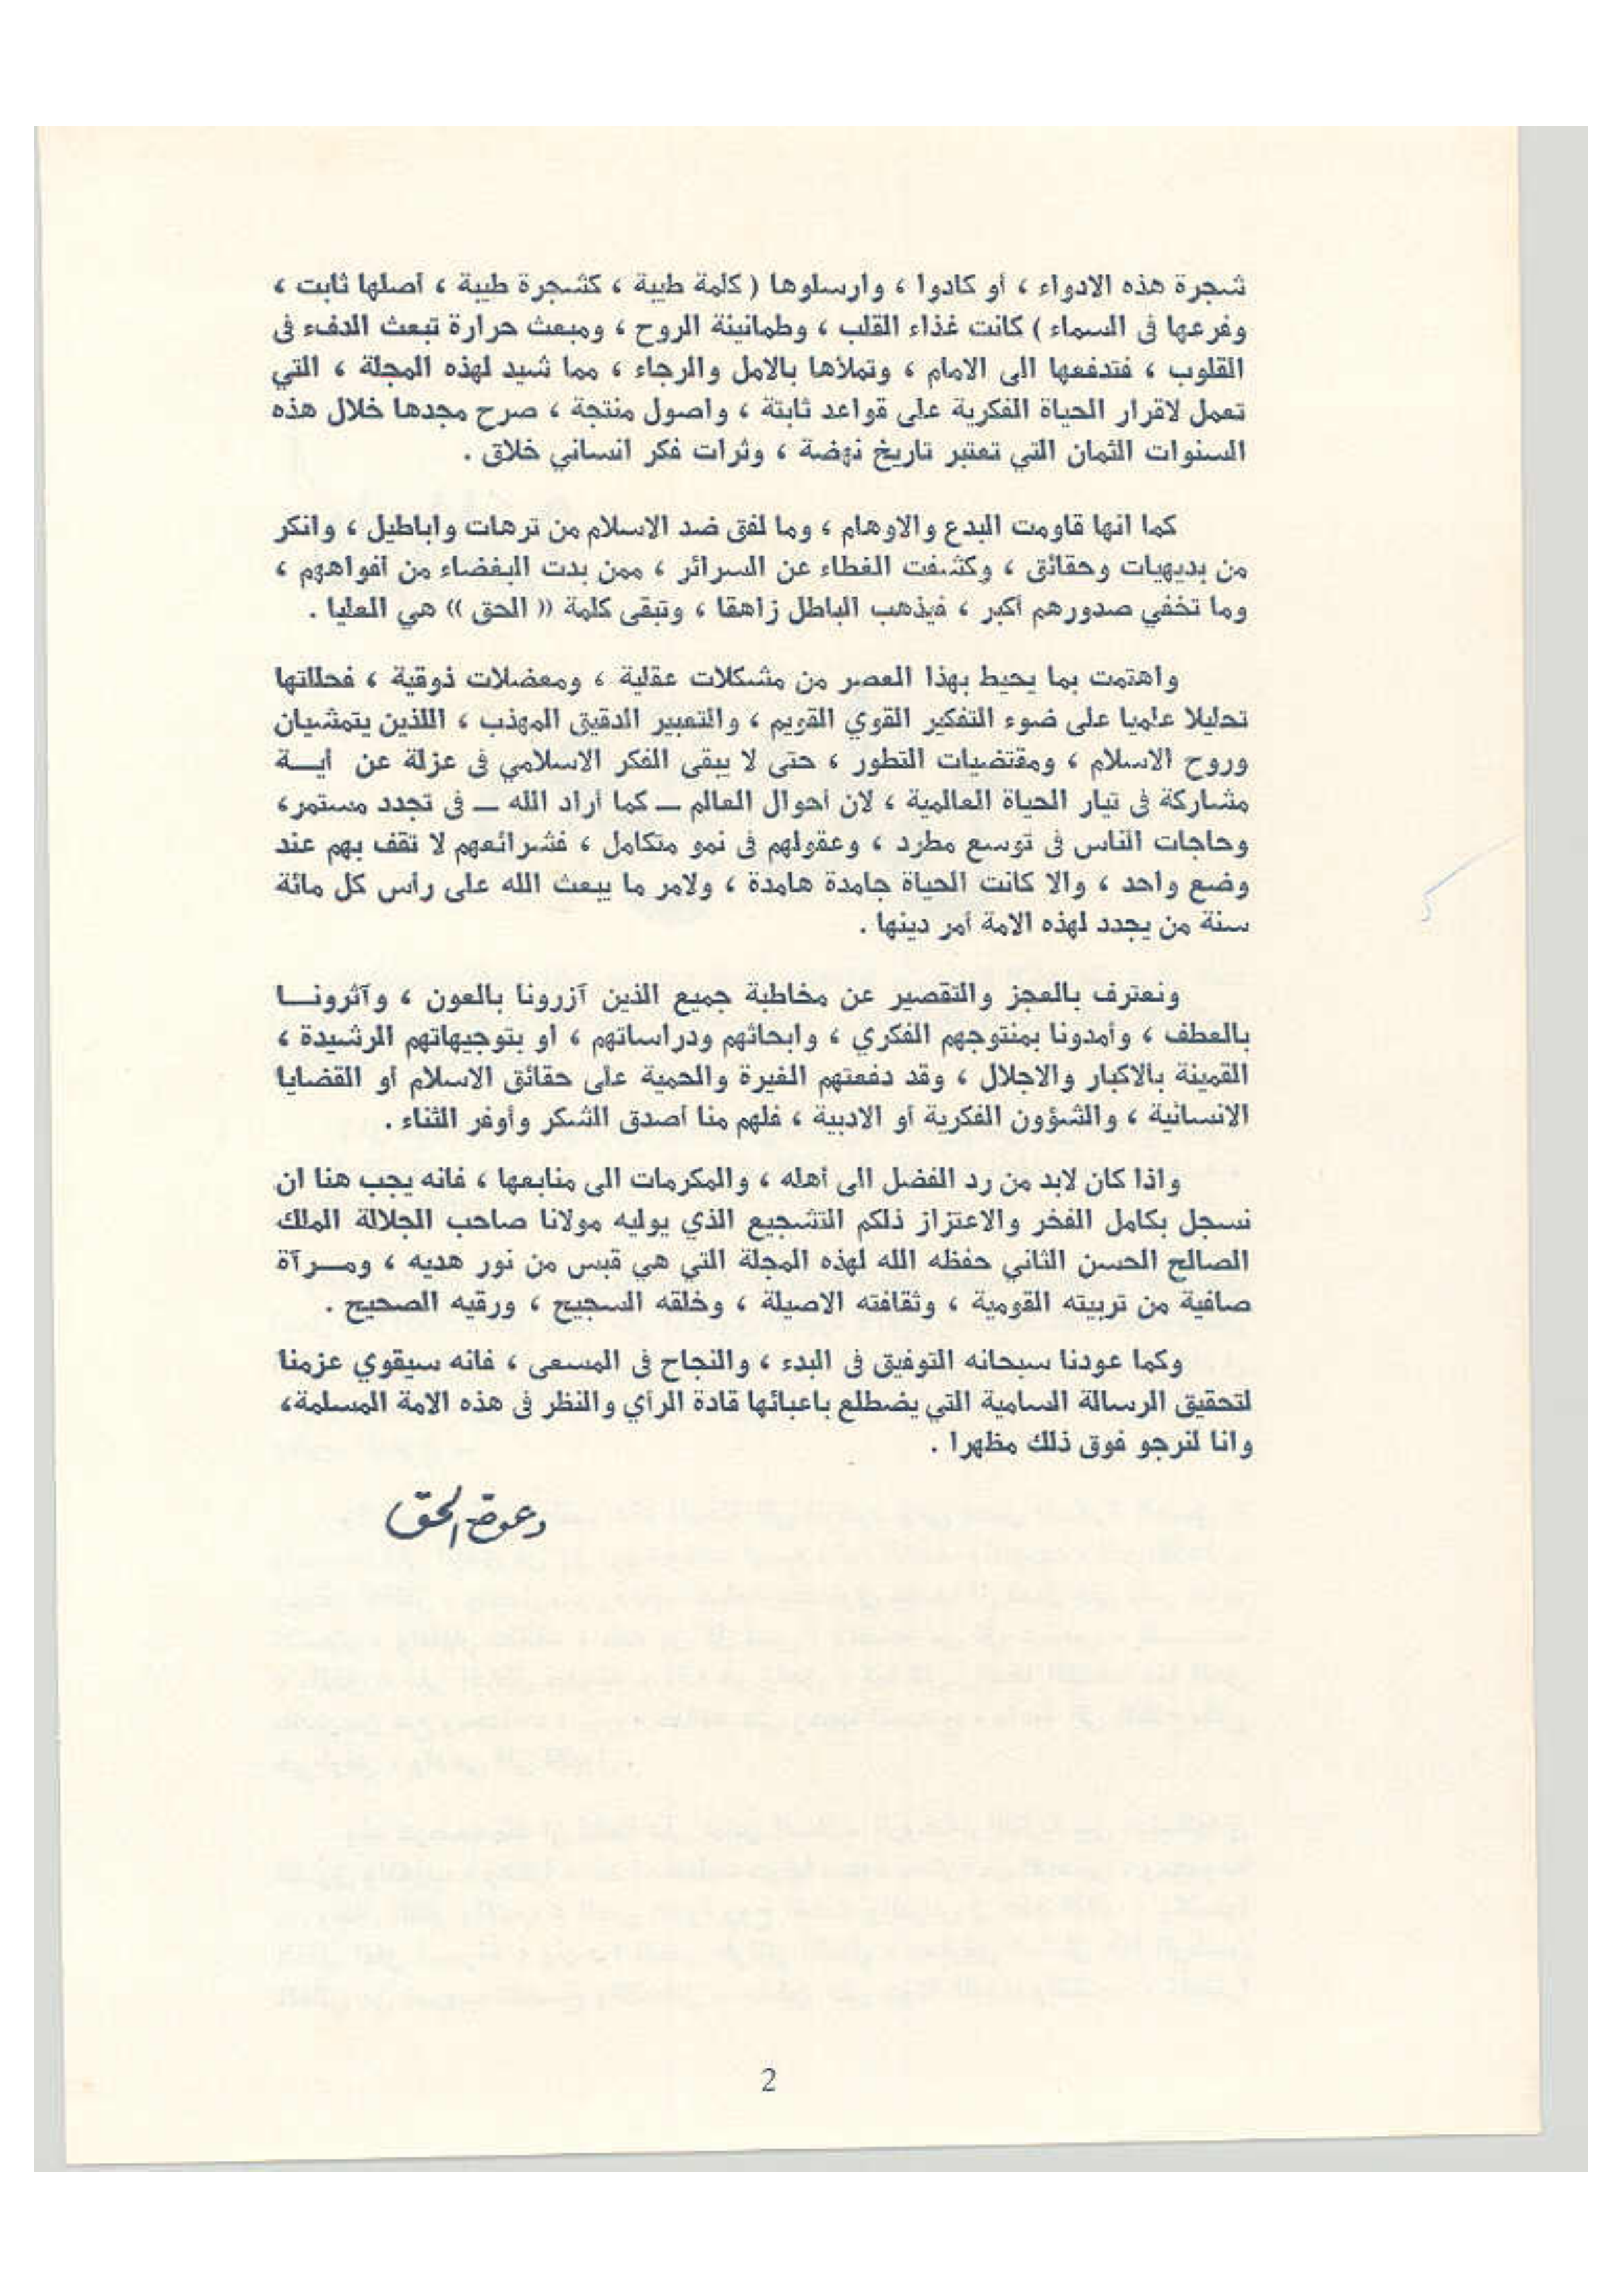 شجرة هذه الادواء ، أو كادوا ، وارسلوها ( كلمة طيبة ، كشجرة طيبة ، أصلها ثابت ،
وفرعها فى السماء ) كانت غذاء القلب ، وطمانينة الروح ، ومبعث حرارة تبعث الدفء فى
القلوب ، فتدفعها الى الامام ، وتملأها بالامل والرجاء ، مما شيد لهذه المجلة ، التي
تعمل لاقرار الحياة الفكرية على قواعد ثابتة ، واصول منتجة ، صرح مجدها خلال هذه
السنوات الثمان التي تعتبر تاريخ نهضة ، وثرات فكر انساني خلاق .
كما انها قاومت البدع والاوهام ، وما لفق ضد الاسلام من ترهات واباطيل ، وانكر
من بديهيات وحقائق ، وكشفت الغطاء عن السرائر ، ممن بدت البغضاء من أفواههم ،
وما تخفي صدورهم أكبر ، فيذهب الباطل زاهقا ، وتبقى كلمة (( الحق )) هي العليا .
واهتمت بما يحيط بهذا العصر من مشكلات عقلية ، ومعضلات ذوقية ، فحللتها
تحليلا علميا على ضوء التفكير القوي القويم ، والتعبير الدقيق المهذب ، اللذين يتمشيان
وروح الاسلام ، ومقتضيات التطور ، حتى لا يبقى الفكر الاسلامي فى عزلة عن ايـــة
مشاركة فى تيار الحياة العالمية ، لان أحوال العالم — كما أراد الله — فى تجدد مستمر،
وحاجات الناس فى توسع مطرد ، وعقولهم فى نمو متكامل ، فشرائعهم لا تقف بهم عند
وضع واحد ، والا كانت الحياة جامدة هامدة ، ولامر ما يبعث الله على رأس كل مائة
سنة من يجدد لهذه الامة أمر دينها .
ونعترف بالعجز والتقصير عن مخاطبة جميع الذين آزرونا بالعون ، وآثرونـــا
بالعطف ، وأمدونا بمنتوجهم الفكري ، وابحاثهم ودراساتهم ، او بتوجيهاتهم الرشيدة ،
القمينة بالاكبار والاجلال ، وقد دفعتهم الغيرة والحمية على حقائق الاسلام أو القضايا
الانسانية ، والشؤون الفكرية أو الادبية ، فلهم منا أصدق الشكر وأوفر الثناء .
واذا كان لابد من رد الفضل الى أهله ، والمكرمات الى منابعها ، فانه يجب هنا ان
نسجل بكامل الفخر والاعتزاز ذلكم التشجيع الذي يوليه مولانا صاحب الجلالة الملك
الصالح الحسن الثاني حفظه الله لهذه المجلة التي هي قبس من نور هديه ، ومـــرآة
صافية من تربيته القومية ، وثقافته الاصيلة ، وخلقه السجيح ، ورقيه الصحيح .
وكما عودنا سبحانه التوفيق فى البدء ، والنجاح فى المسعى ، فانه سيقوي عزمنا
لتحقيق الرسالة السامية التي يضطلع باعبائها قادة الرأي والنظر فى هذه الامة المسلمة،
وانا لنرجو فوق ذلك مظهرا .
دعوة الحق
2